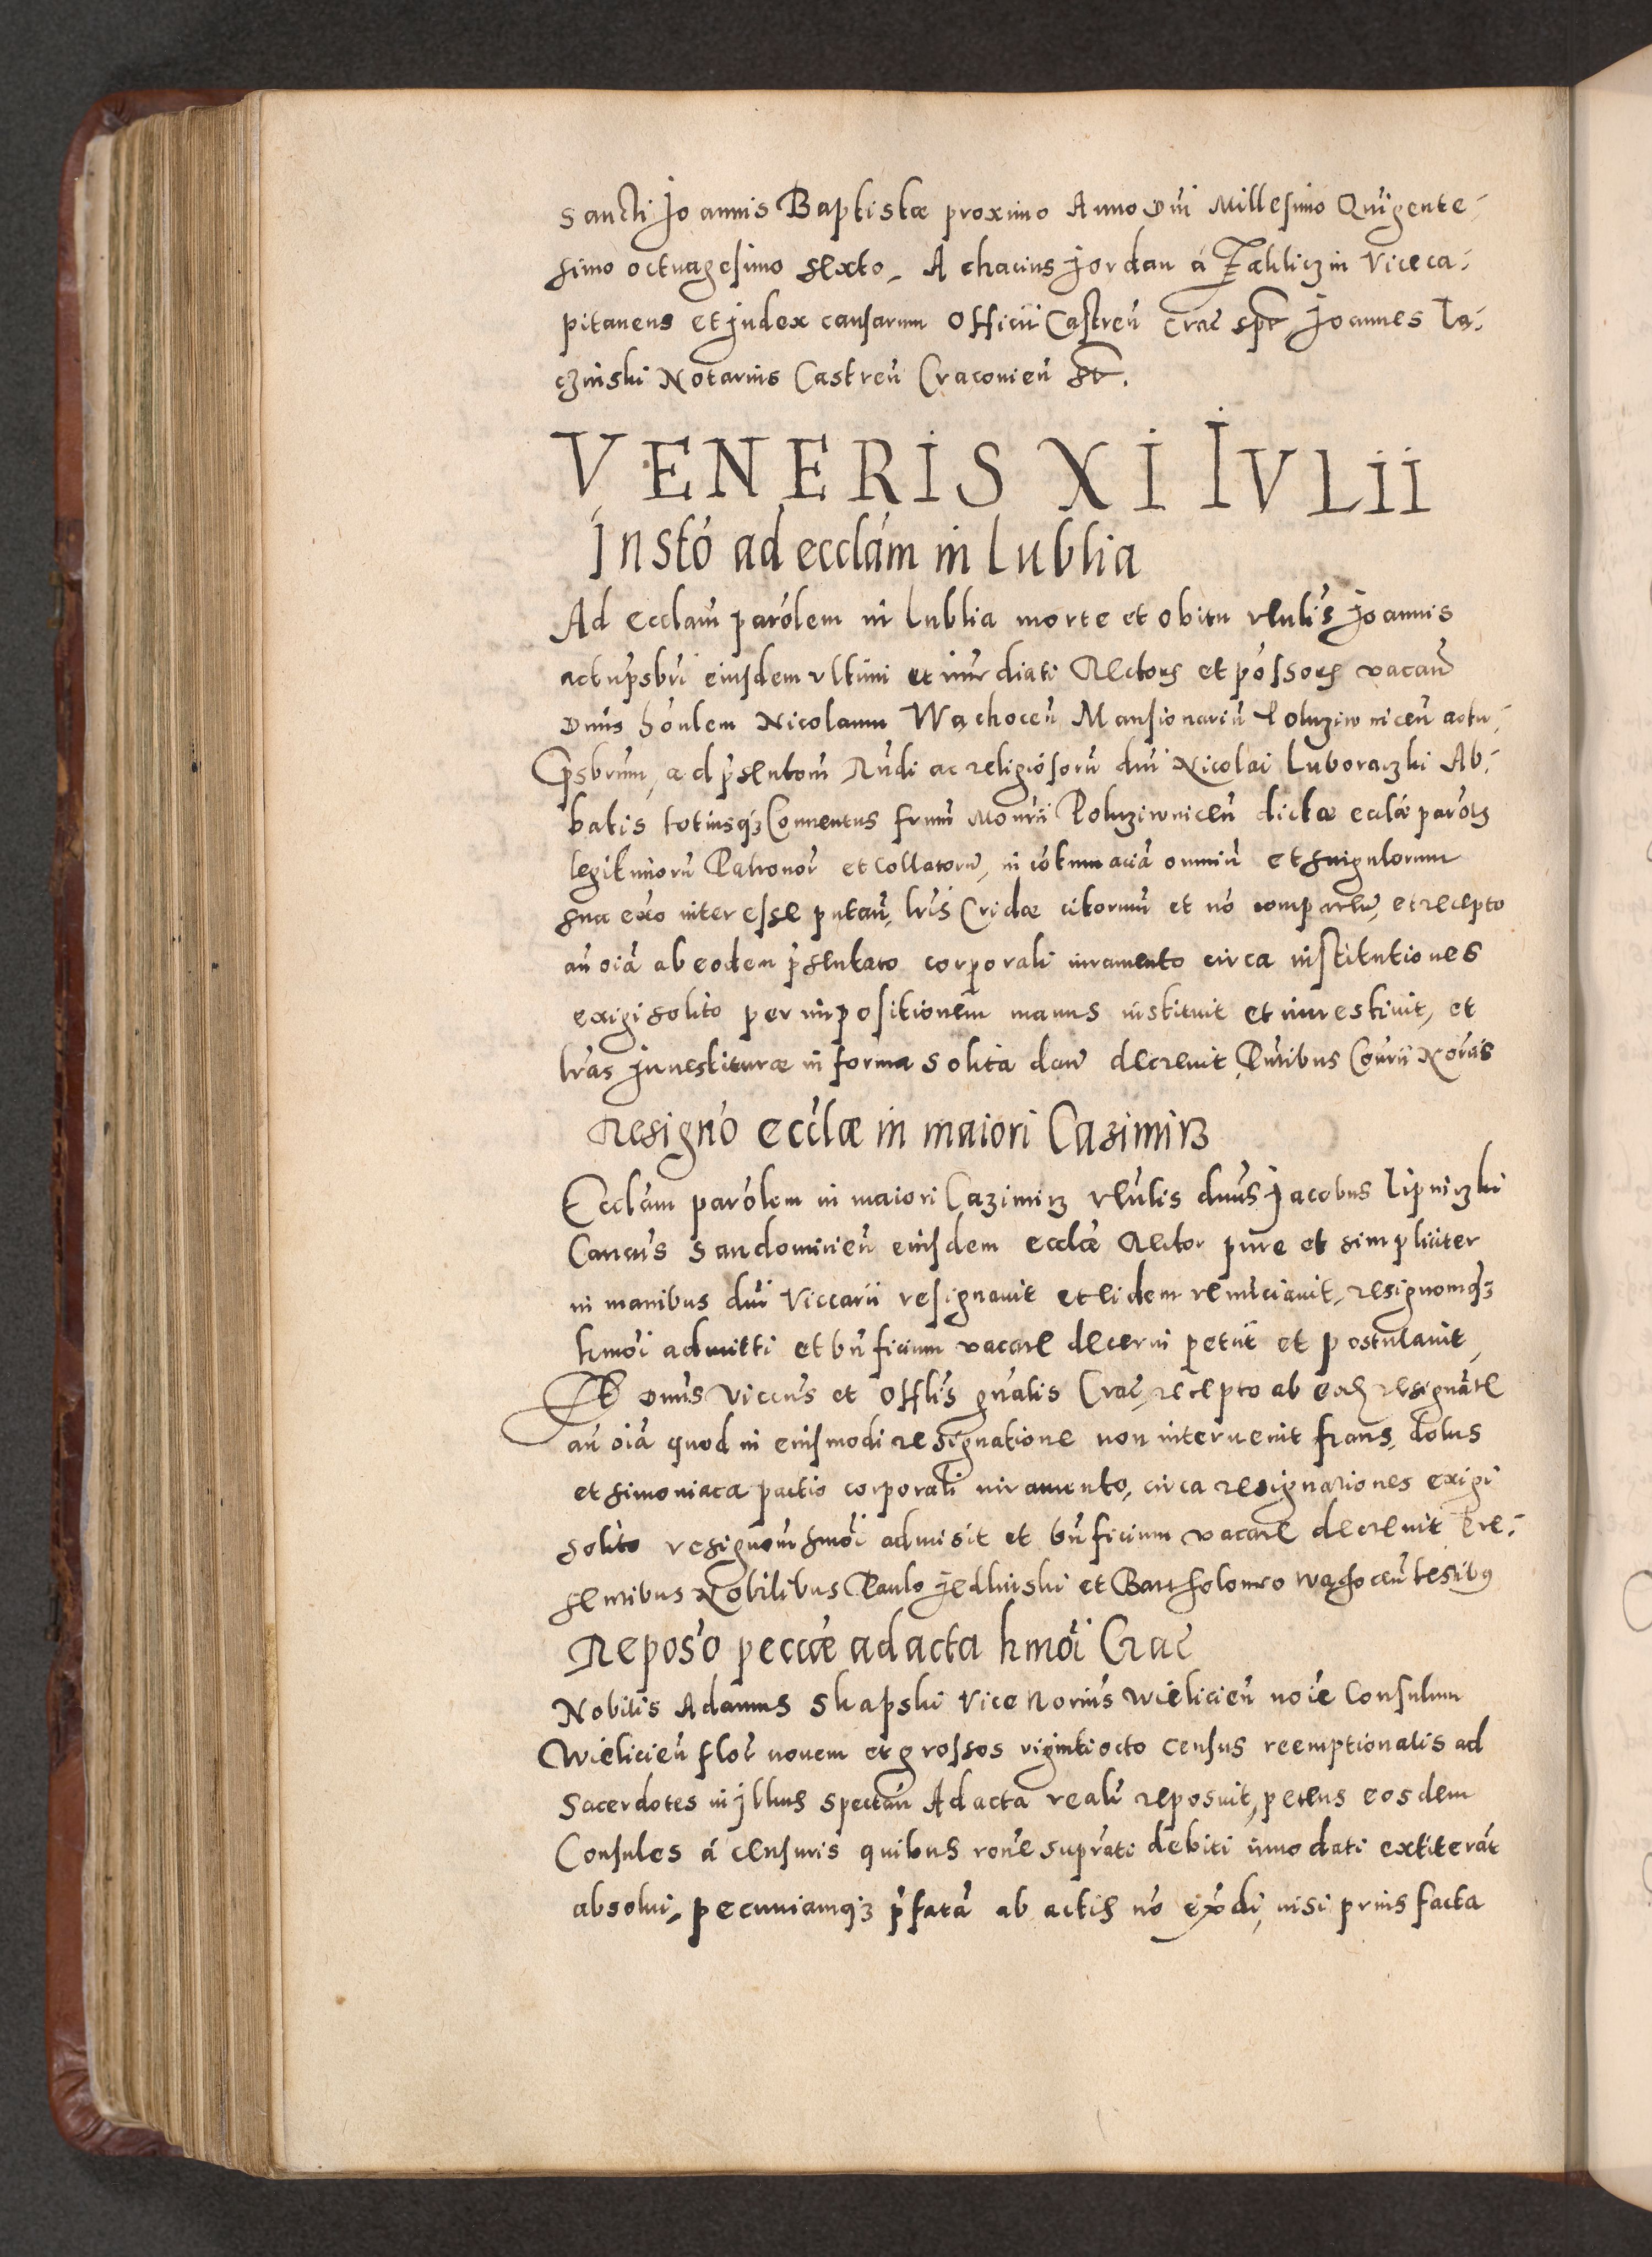 Sancti Joannis Baptistæ proximo Anno Dni Millesimo Quigente-
simo octuagesimo sexto, Achacius Jordan á Zakliczin Viceca-
pitaneus et Judex causarum Officii Castreñ Crac̃ sspt Joannes
czinski Notarius Castreñ Cracovieñ sst.
VENERIS XI IVLII
Insto ad ecclam in Lublia
Ad ecclam parolem in Lublia morte et obitu vlulis Joannis
actu psbri eiusdem vltimi et immediati Rectoris et possoris vacañ
Dnus honlem Nicolaum Wachoceñ Mansionariũ Coluziwniceñ actu
psbrum, ad psentom Rndi ac religiosorũ dni Nicolai Luboraczki Ab-
batis totiusqȝ Conuentus frum Monrii Coluziwniceñ dictæ ecclæ parolis
legitimorũ Patronor et Collatorũ, in cotumaciã omniũ et singulorum
sua exo interesse putañ, lris Cridæ citorum et nõ compareñ, et recepto
añ oĩa ab eodem psentato corporali iuramento circa institutiones
exigi solito per impositionem manus instituit et inuestiuit, et
lras Inuestituræ in forma solita dare decreuit, Pntibus Conrii Noriis
Resigno ecclæ in maiori Cazimirȝ
Ecclam parolem in maiori Cazimirȝ vlulis dnus Jacobus Lipniczki
Cancus Sandomirieñ eiusdem ecclæ Rector pure et simpliciter
in manibus dni Viccarii resignauit et eidem renuciauit, resignomqȝ
hmõi admitti et bnficium vacare decerni petiit et postulauit,
Et Dnus Viccus et Offlis gnalis Crac̃, recepto ab eodȝ resignãte
añ oĩa quod in eiusmodi resignatione non interuenit fraus, dolus
et simoniaca pactio corporali iuramento, circa resignationes exigi
solito resignom hmõi admisit et bnficium vacare decreuit Pre-
sentibus Nobilibus Paulo Jedlinski et Bartholomeo Wachoceñ testibꝰ
Reposo peccæ ad acta hmõi Crac̃
Nobilis Adamus Skapski Vice Norius Wielicieñ noĩe Consulum
Wielicieñ flor nouem et grossos vigintiocto census reemptionalis ad
Sacerdotes in Illkus spectañ Ad acta realir reposuit, petens eosdem
Consules á censuris quibus rone suprati debiti innodati extiterãt
absolui, pecuniamqȝ pfatã ab actis nõ exdi, nisi prius facta